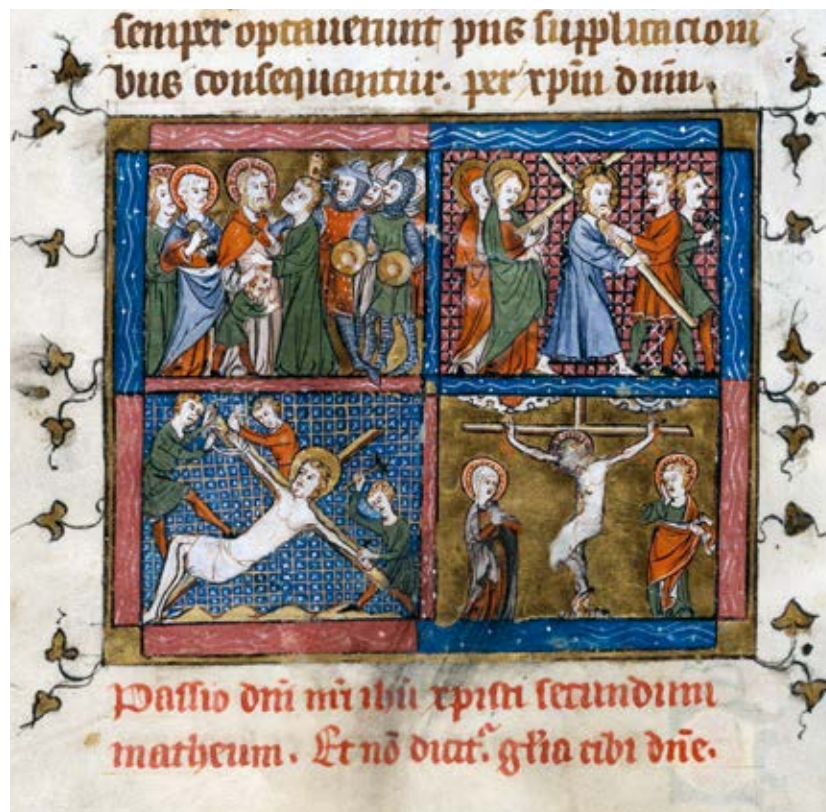 semper optauerunt piis supplicacioni
bus consequantur. per xpm dnm.
Passio dni nri ihu xpisti secundum
matheum. Et no dicit gloria tibi dne.